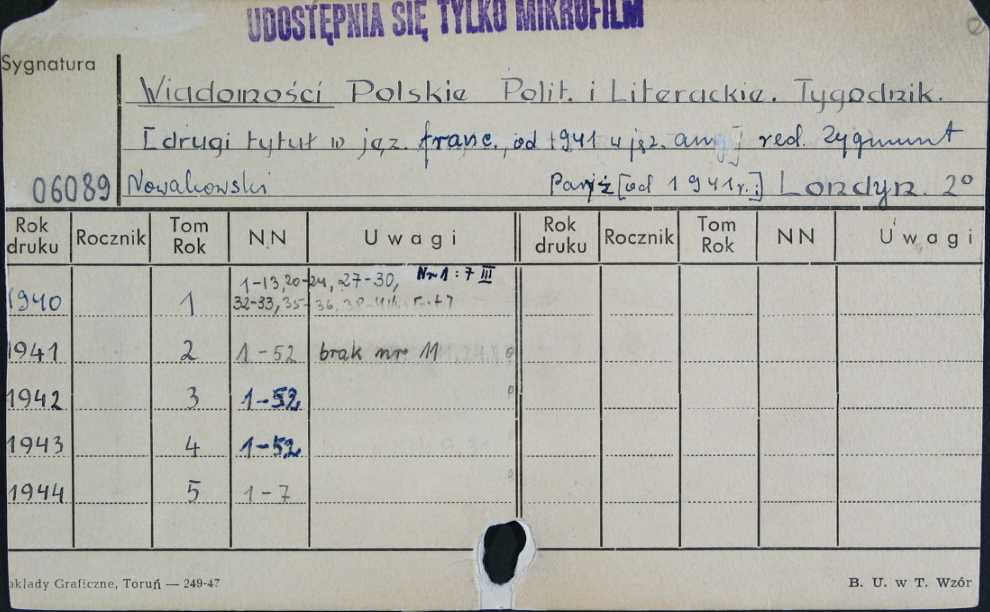 UDOSTĘPNIA SIĘ TYLKO MIKROFILM
Sygnatura
Wiadomości Polskie Polit. i Literackie. Tygodnik.
[drugi tytuł w jęz. franc., od 1941 w jęz. ang] red. Zygmunt
06089 Nowakowski Paryż [od 1941r.:] Londyn. 2°
Rok druku Rocznik Tom Rok NN Uwagi Rok druku Rocznik Tom Rok NN Uwagi
1940 1 1-13, 20-24, 27-30, Nr 1 : 7 III
32-33, 35-36, 38-
1941 2 1-52 brak nr 11
1942 3 1-52
1943 4 1-52
1944 5 1-7
kłady Graficzne, Toruń — 249-47 B. U. w T. Wzór